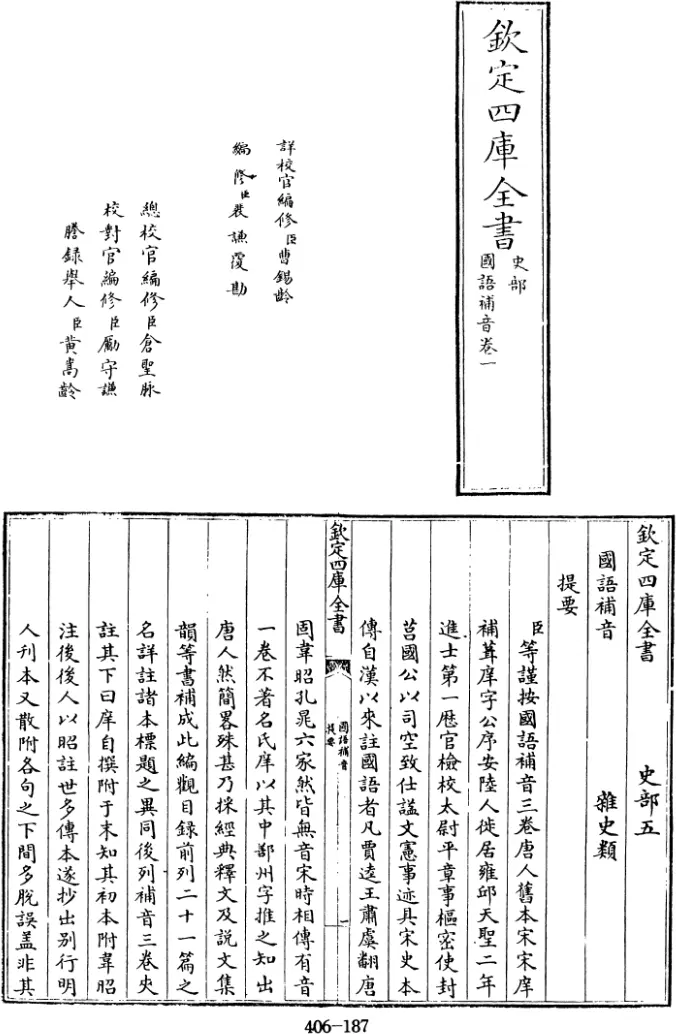 欽定四庫全書
史部
國語補音卷一
詳校官編修臣曹錫齡
編修臣裴謙覆勘
總校官編修臣倉聖脉
校對官編修臣勵守謙
謄録舉人臣黄嵩齡
欽定四庫全書　史部五
國語補音　雜史類
提要
臣等謹按國語補音三卷唐人舊本宋宋庠
補葺庠字公序安陸人徙居雍邱天聖二年
進士第一厯官檢校太尉平章事樞密使封
莒國公以司空致仕謚文憲事迹具宋史本
傳自漢以來註國語者凡賈逵王肅虞翻唐
欽定四庫全書
國語補音
提要
一
固韋昭孔晁六家然皆無音宋時相傳有音
一卷不著名氏庠以其中鄯州字推之知出
唐人然簡畧殊甚乃採經典釋文及説文集
韻等書補成此編觀目録前列二十一篇之
名詳註諸本標題之異同後列補音三卷夾
註其下曰庠自撰附于末知其初本附韋昭
注後後人以昭註世多傳本遂抄出别行明
人刋本又散附各句之下間多脱誤盖非其
406-187